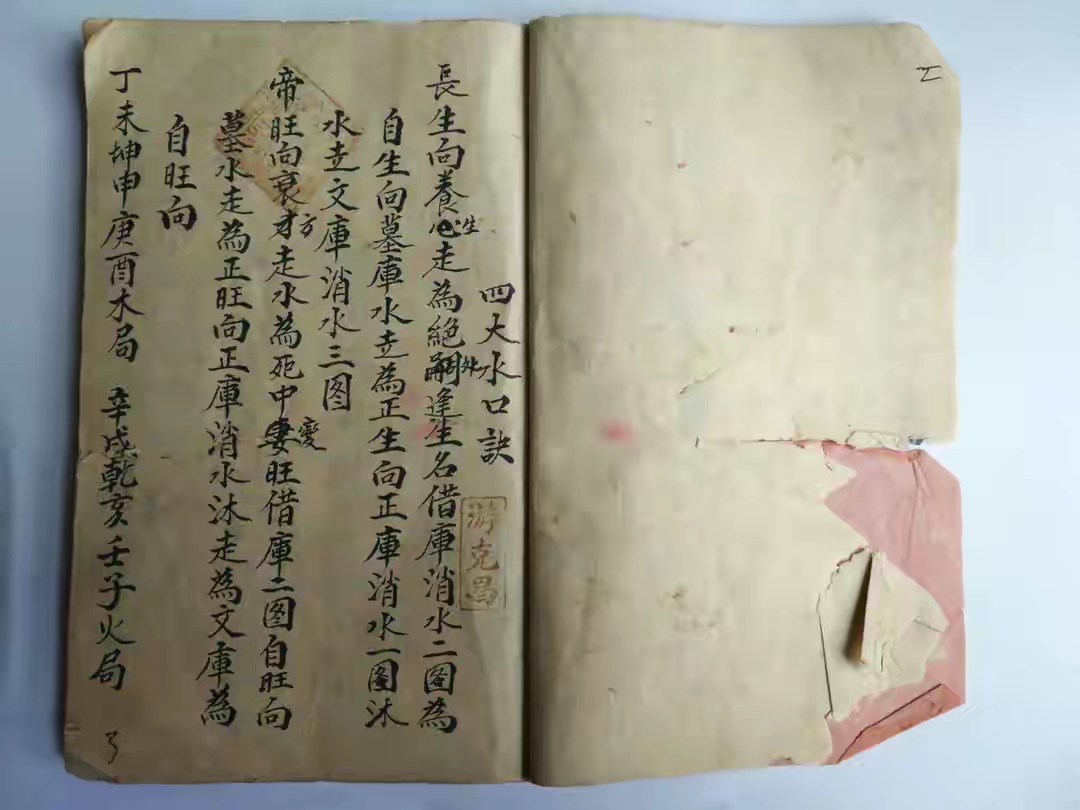 四大水口訣
游克昌
長生向養生走為絕嗣處逢生名借庫消水二图為
自生向墓庫水走為正生向正庫消水一图沐
水走文庫消水三图
帝旺向衰方走水為死中變旺借庫二图自旺向
墓水走為正旺向正庫消水沐走為文庫為
自旺向
丁未坤申庚酉木局 辛戌乾亥壬子火局